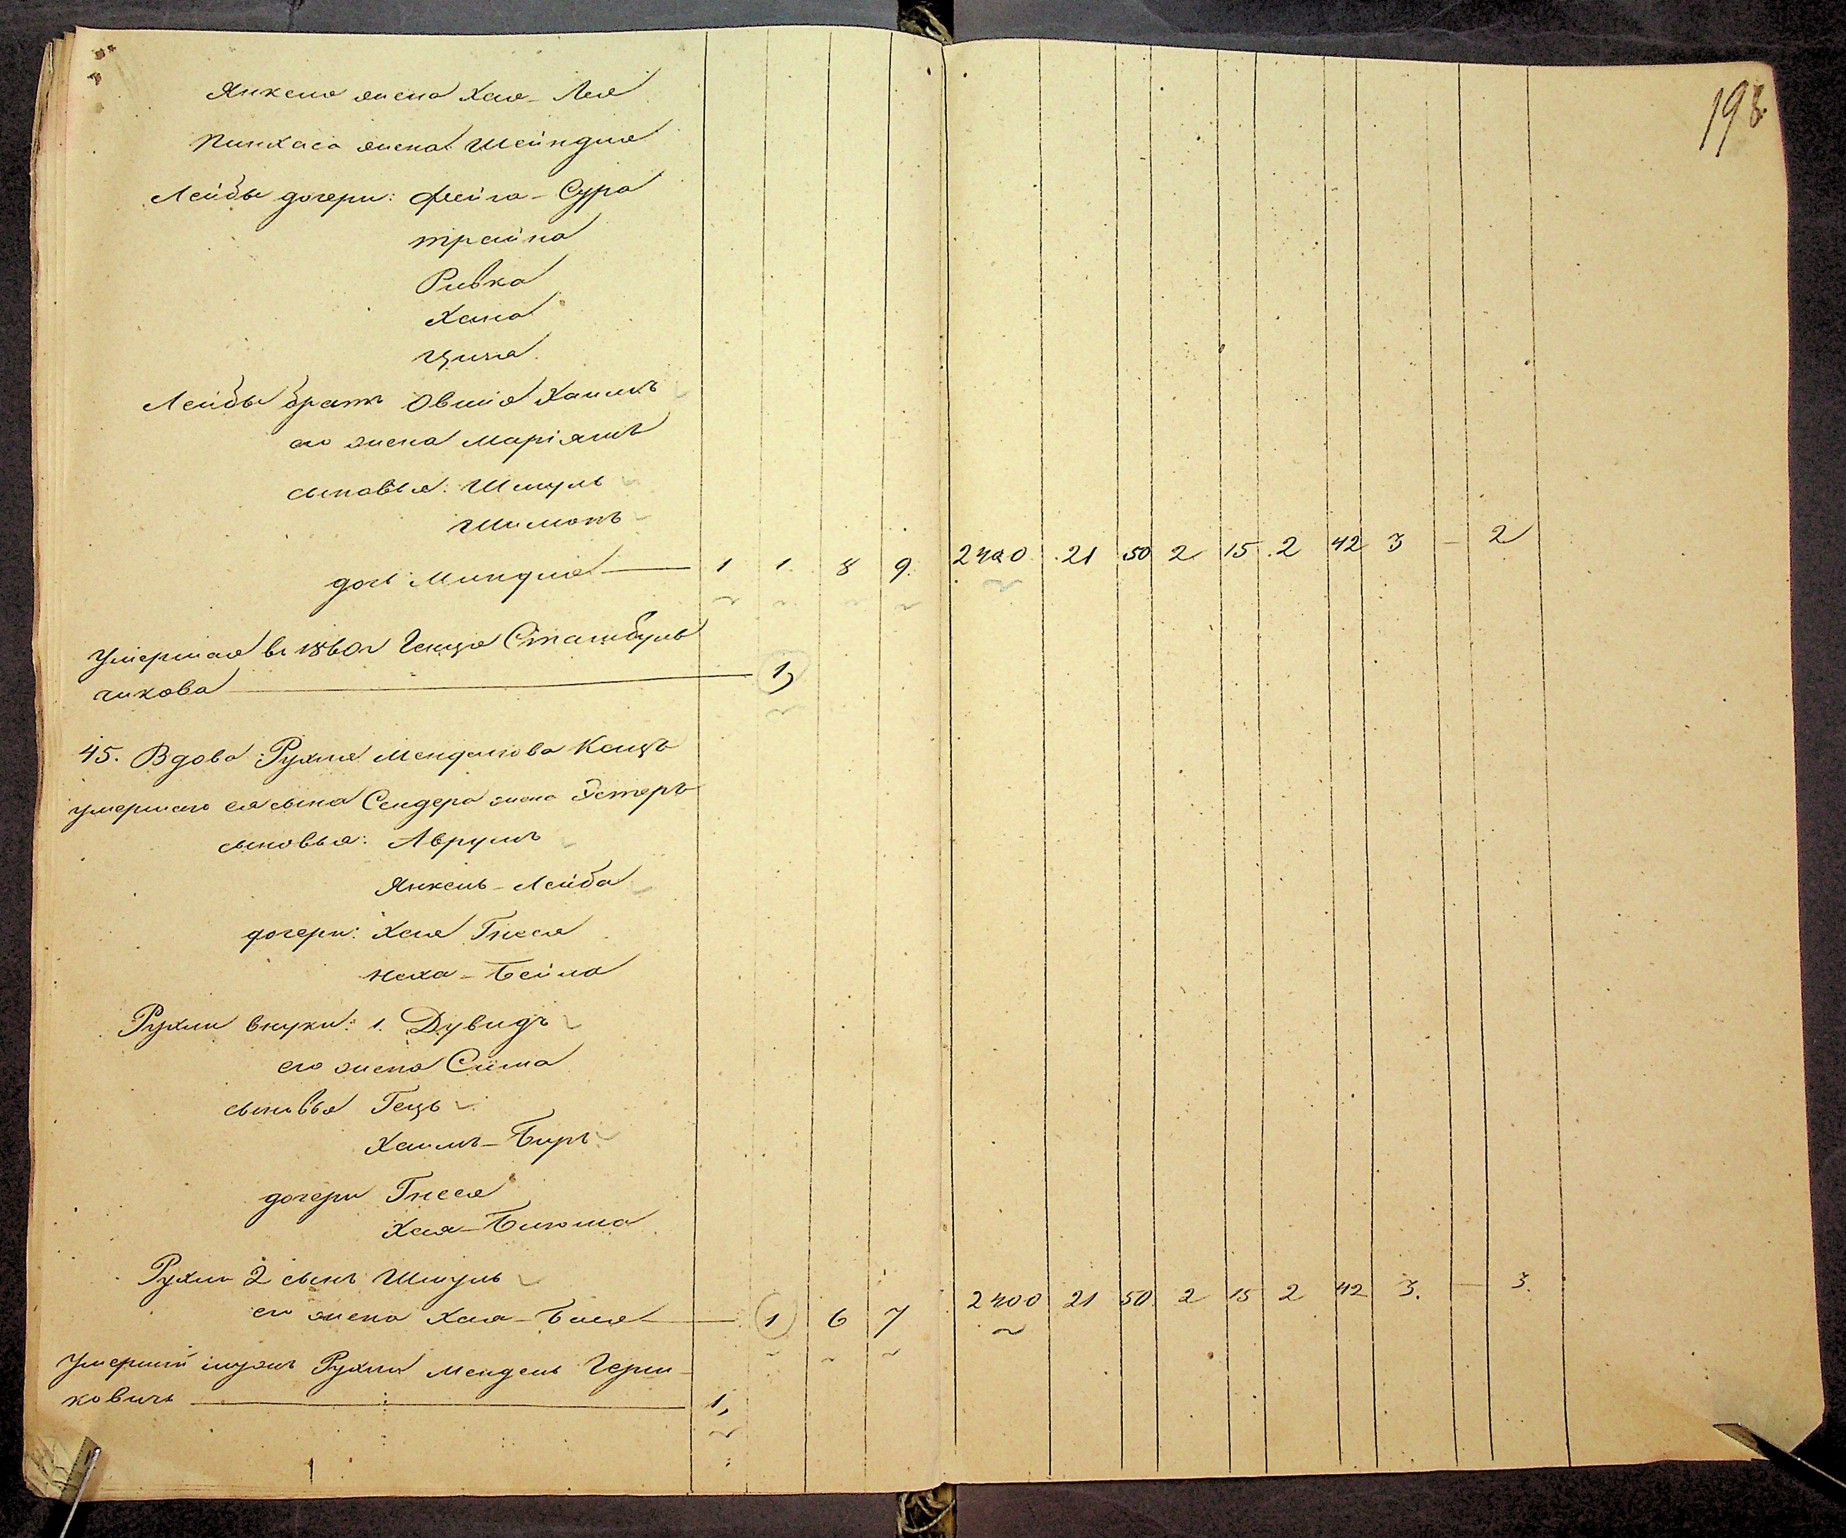 198
Янкеля жена Хая-Лея
Пинхаса жена Шейндля
Лейбы дочери: Фейга-Сура
Трайна
Ривка
Хана
Ципа
Лейбы братъ Овшія Хаимъ
его жена Маріямъ
сыновья: Шмуль
Шимонъ
дочь Миндля — 1 1 8 9 2400 21 50 2 15 2 42 3 — 2
Умершая въ 1860г Генця Стамбуль
чикова — 1,
45. Вдова Рухля Менделова Кацъ
умершаго ея сына Сендера жена Эстеръ
сыновья: Аврумъ
Янкель-Лейба
дочери: Хая Гнеся
Неха-Бейла
Рухли внуки: 1. Дувидъ
его жена Сима
сыновья Гецъ
Хаимъ-Беръ
дочери Гнеся
Хая-Блюма
Рухли 2 сынъ Шмуль
его жена Хая-Бася — 1 6 7 2400 21 50 2 15 2 42 3. — 3.
Умершій мужъ Рухли Мендель Герш-
ковичъ — 1,